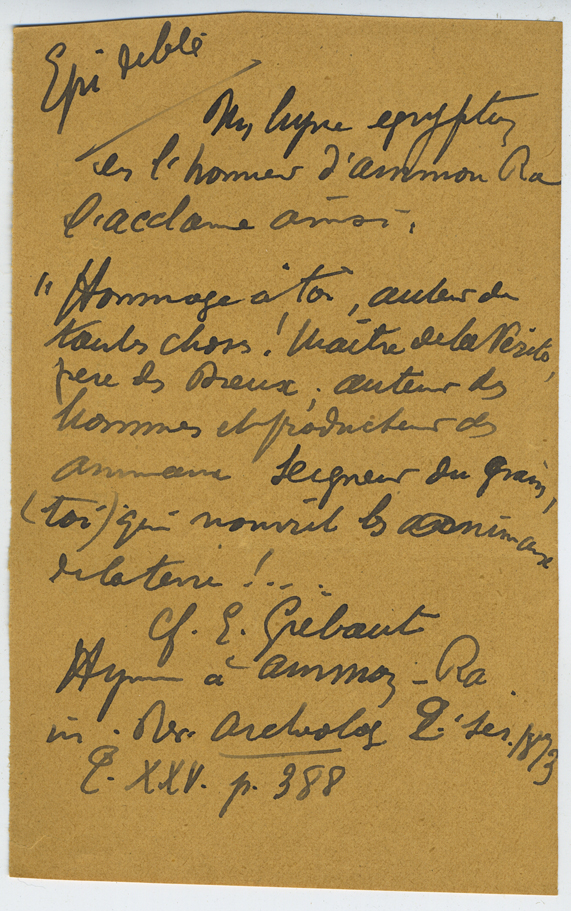 Epi de blé
Un hymne egyptien
en l'honneur d'ammon Ra
l'acclame ainsi.
"Hommage à toi, auteur de
toutes choses! Maître de la Vérité,
père des Dieux; auteur des
hommes et producteur des
animaux Seigneur du grain,
(toi) qui nourrit les animaux
de la terre!...
Cf. E. Grébaut
Hymne à ammon-Ra
in. Rev. Archeolog 2e ser. 1873
T. XXV. p. 388